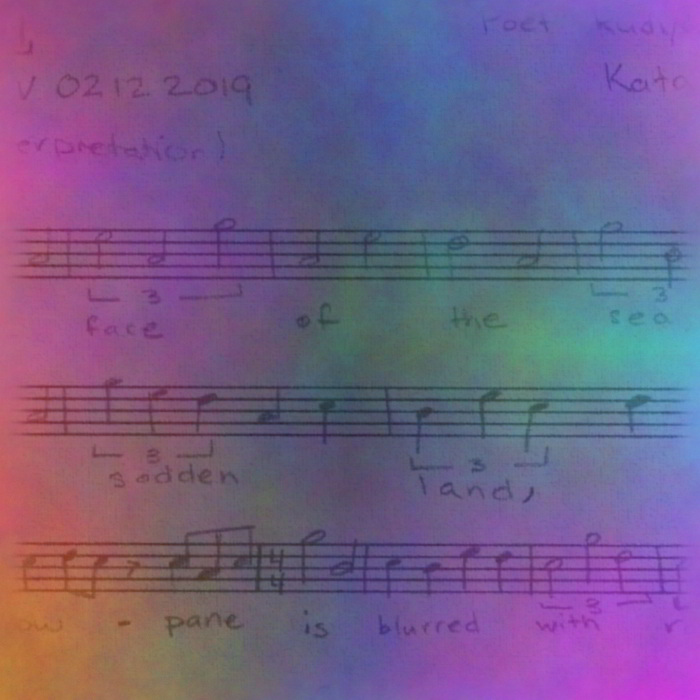 V 02 12 2019
Kato
erpretation)
3 3
face of the sea
3 3
sodden land,
4
4
3
- pane is blurred with r